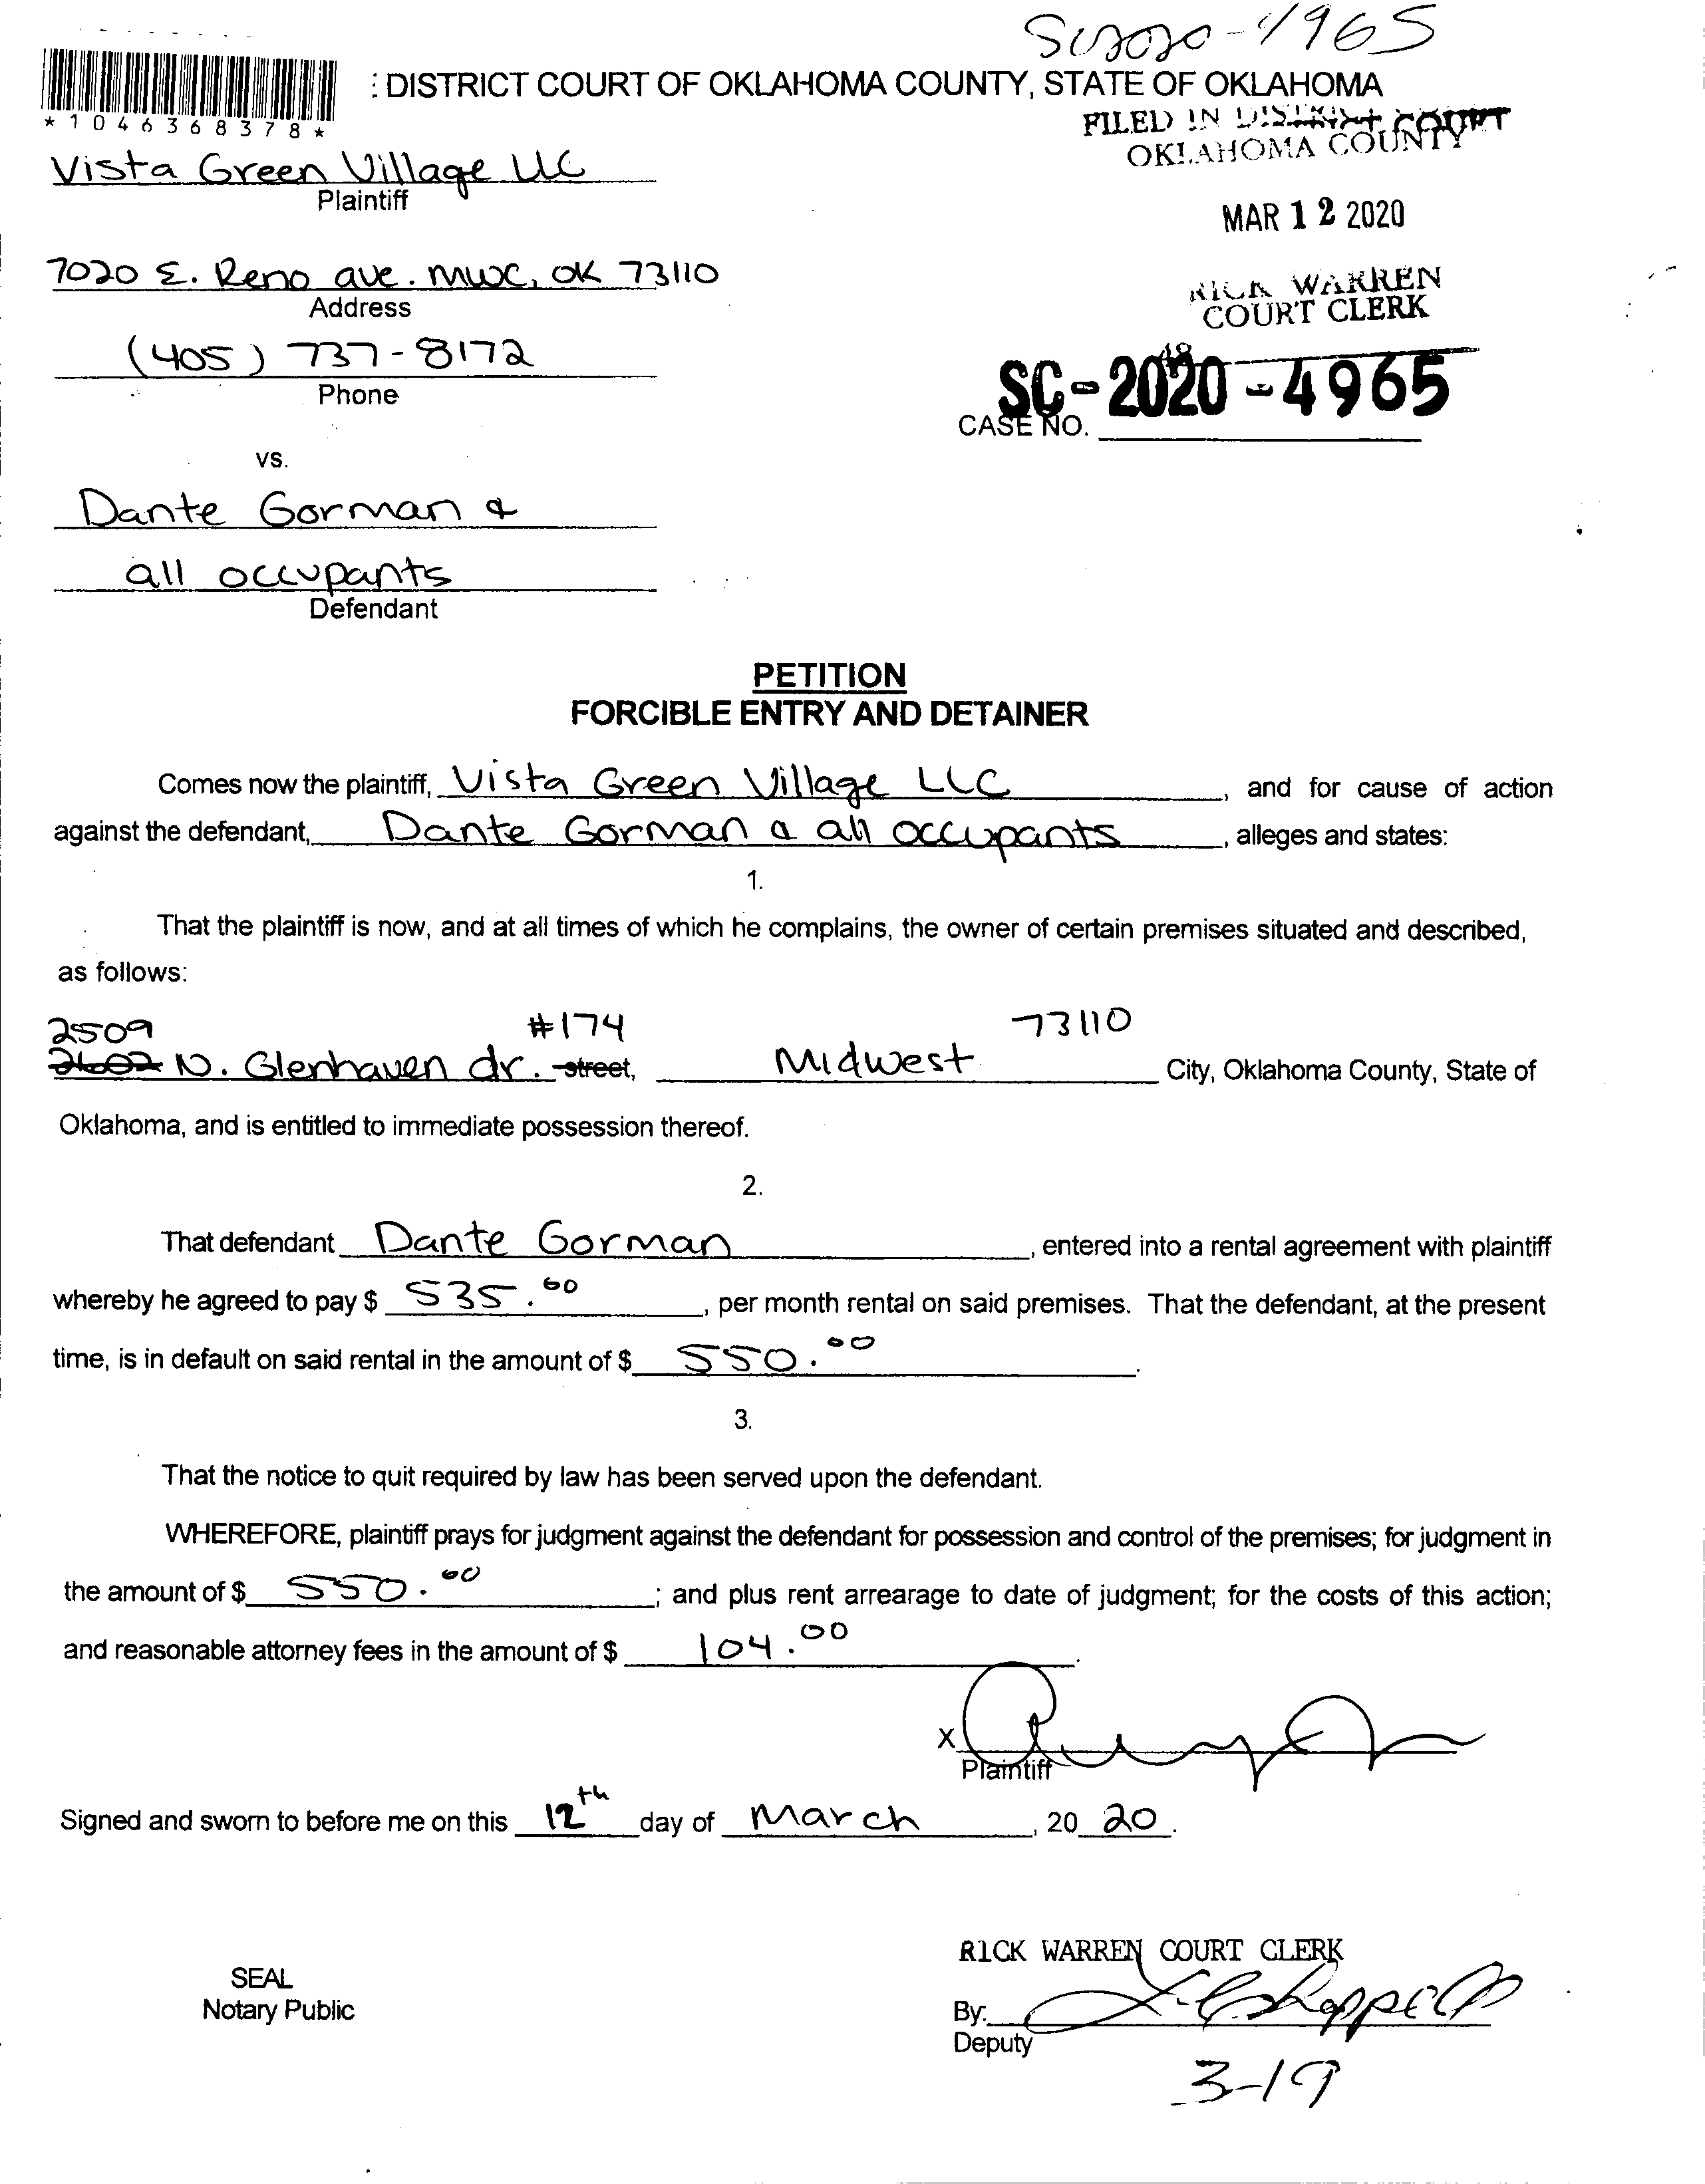 SC2020-4965
: DISTRICT COURT OF OKLAHOMA COUNTY, STATE OF OKLAHOMA
*1046368378*
FILED IN DISTRICT COURT
OKLAHOMA COUNTY
Vista Green Village LLC
Plaintiff
MAR 12 2020
7020 E. Reno ave. MWC, OK 73110
Address
RICK WARREN
COURT CLERK
(405) 737-8172
Phone
48
SC-2020-4965
CASE NO.
vs.
Dante Gorman &
all occupants
Defendant
PETITION
FORCIBLE ENTRY AND DETAINER
Comes now the plaintiff, Vista Green Village LLC, and for cause of action
against the defendant, Dante Gorman & all occupants, alleges and states:
1.
That the plaintiff is now, and at all times of which he complains, the owner of certain premises situated and described,
as follows:
2509 #174 73110
2602 N. Glenhaven dr. street, Midwest City, Oklahoma County, State of
Oklahoma, and is entitled to immediate possession thereof.
2.
That defendant Dante Gorman, entered into a rental agreement with plaintiff
whereby he agreed to pay $ 535.00, per month rental on said premises. That the defendant, at the present
time, is in default on said rental in the amount of $ 550.00.
3.
That the notice to quit required by law has been served upon the defendant.
WHEREFORE, plaintiff prays for judgment against the defendant for possession and control of the premises; for judgment in
the amount of $ 550.00; and plus rent arrearage to date of judgment; for the costs of this action;
and reasonable attorney fees in the amount of $ 104.00.
X
Plaintiff
Signed and sworn to before me on this 12th day of March, 20 20.
RICK WARREN COURT CLERK
SEAL
Notary Public
By:
Deputy
3-19